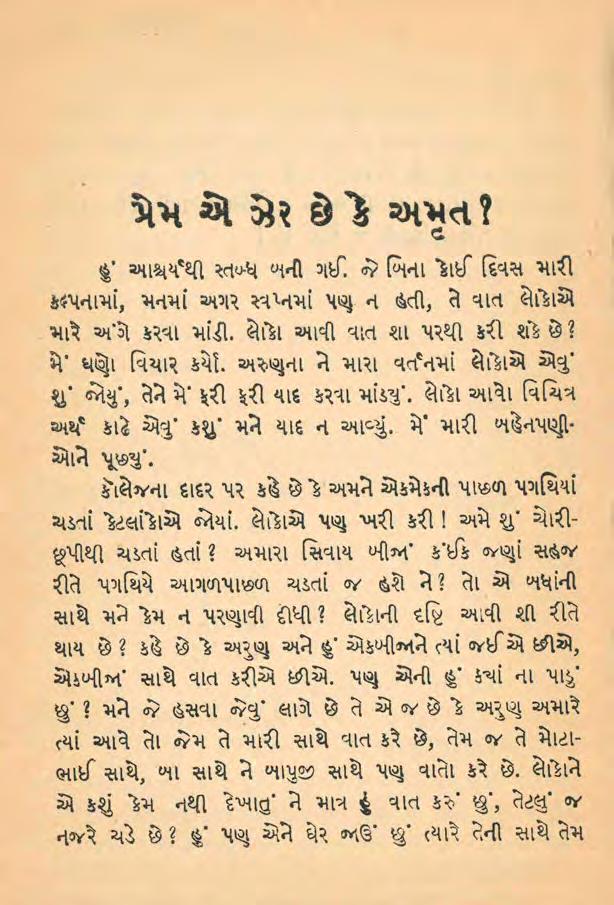 પ્રેમ એ ઝેર છે કે અમૃત?
હું આશ્ચર્યથી સ્તબ્ધ બની ગઈ. જે બિના કોઈ દિવસ મારી
કલ્પનામાં, મનમાં અગર સ્વપ્નમાં પણ ન હતી, તે વાત લોકોએ
મારે અંગે કરવા માંડી. લોકો આવી વાત શા પરથી કરી શકે છે?
મેં ઘણો વિચાર કર્યો. અરુણના ને મારા વર્તનમાં લોકોએ એવું
શું જોયું, તેને મેં ફરી ફરી યાદ કરવા માંડયું. લોકો આવો વિચિત્ર
અર્થ કાઢે એવું કશું મને યાદ ન આવ્યું. મેં મારી બહેનપણી-
ઓને પૂછયું.
કૉલેજના દાદર પર કહે છે કે અમને એકમેકની પાછળ પગથિયાં
ચડતાં કેટલાંકોએ જોયાં. લોકોએ પણ ખરી કરી! અમે શું ચોરી-
છૂપીથી ચડતાં હતાં? અમારા સિવાય બીજાં કંઈક જણાં સહજ
રીતે પગથિયે આગળપાછળ ચડતાં જ હશે ને? તો એ બધાંની
સાથે મને કેમ ન પરણાવી દીધી? લોકોની દૃષ્ટિ આવી શી રીતે
થાય છે? કહે છે કે અરુણ અને હું એકબીજાને ત્યાં જઈએ છીએ,
એકબીજાં સાથે વાત કરીએ છીએ. પણ એની હું કયાં ના પાડું
છું? મને જે હસવા જેવું લાગે છે તે એ જ છે કે અરુણ અમારે
ત્યાં આવે તો જેમ તે મારી સાથે વાત કરે છે, તેમ જ તે મોટા-
ભાઈ સાથે, બા સાથે ને બાપુજી સાથે પણ વાતો કરે છે. લોકોને
એ કશું કેમ નથી દેખાતું ને માત્ર હું વાત કરું છું, તેટલું જ
નજરે ચડે છે? હું પણ એને ઘેર જાઉં છું ત્યારે તેની સાથે તેમ